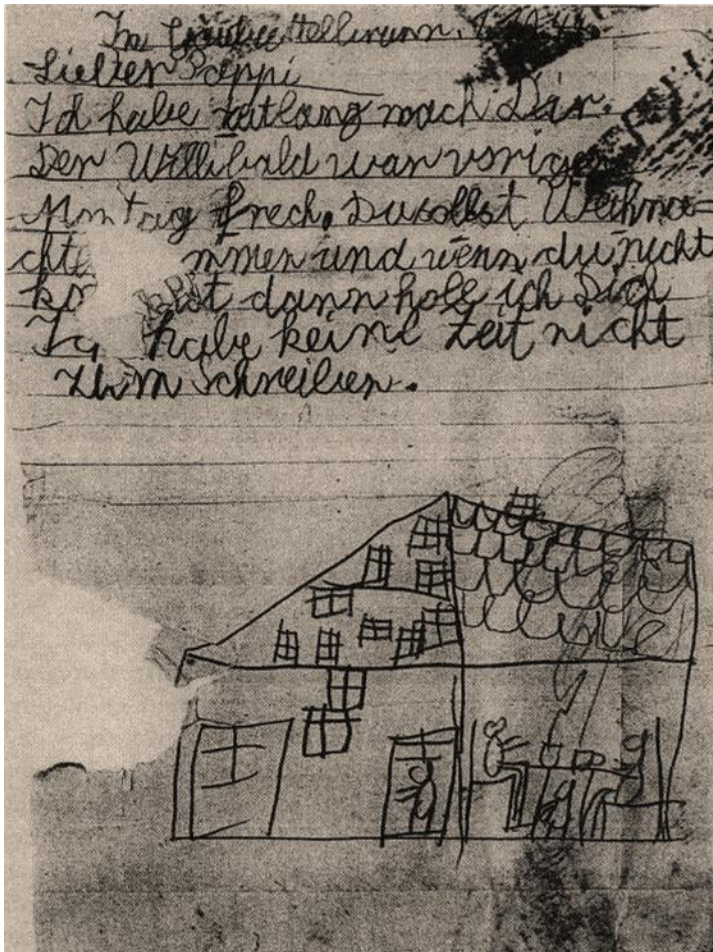 Im
Lieber Pappi
Ich habe zeitlang nach Dir.
Der Willibald war vorigen
Montag frech. Du sollst Weihna=
chte mmen und wenn du nicht
ko st dann hole ich Dich
Ich habe keine Zeit nicht
zum Schreiben.